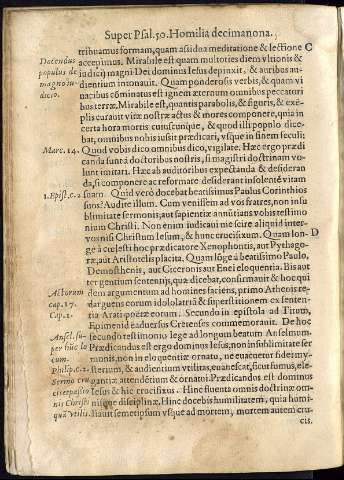 Super Psal. 50. Homilia decimanona.
tribuamus formam, quam assidua meditatione & lectione C
Docendus accepimus. Mirabile est quam multoties diem vltionis &
populus de iudicij magni Dei dominus Iesus depinxit, & auribus au-
magno iu- dientium intonauit. Quam ponderosis verbis, & quam vi
dicio. uacibus cõminatus est ignem æternum omnibus peccatori
bus terræ. Mirabile est, quantis parabolis, & figuris, & exẽ-
plis curauit vitæ nostræ actus & mores componere, quia in
certa hora mortis cuiuscunque, & quod illi populo dice-
bat, omnibus nobis iussit prædicari, vsque in finem seculi;
Marc. 14. Quod vobis dico omnibus dico, vigilate. Hæc ergo prædi
canda sunt à doctoribus nostris, si magistri doctrinam vo-
lunt imitari. Hæc ab auditoribus expectanda & desideran
da, si componere ac reformare desiderant insolentẽ vitam
1. Epist. c. 2 suam. Quid verò docebat beatissimus Paulus Corinthios
suos? Audite illum. Cum venissem ad vos fratres, non in su
blimitate sermonis, aut sapientiæ annũtians vobis testimo
nium Christi. Non enim iudicaui me scire aliquid inter-
vos nisi Christum Iesum, & hunc crucifixum. Quam lon- D
gè à cælesti hoc prædicatore Xenophontis, aut Pythago-
ræ, aut Aristotelis placita. Quam lõgè à beatissimo Paulo,
Demosthenis, aut Ciceronis aut Enei eloquentia. Bis aut
ter gentium sententijs, qua dicebat, confirmauit & hoc qui
Actorum dem argumentum ad homines faciens, primo Athenis re-
cap. 17. darguens eorum idololatriã & superstitionem ex senten-
Cap. 1. tia Arati poëtæ eorum. Secundo in epistola ad Titum,
Epimenidem aduersus Cretenses commemorauit. De hoc
Ansel. su- secundo testimonio lege ad longum beatum Anselmum.
per húc lo Prædicandus est ergo dominus Iesus, non in sublimitate ser
cum. monis, non in eloquentiæ ornatu, ne euacuetur fidei my-
Philip. c. 2 sterium, & audientium vtilitas, euanescat, sicut fumus, ele
Sermo cru gantiæ attendẽtium & ornatoi. Prædicandus est dominus
Iesus & hic crucifixus. Hinc fluenta omnis doctrinæ om-
nis Christi nisque disciplinæ. Hinc docebis humilitatem, quia humi-
quã vtilis. liauit semetipsum vsque ad mortem, mortem autem cru
cis.